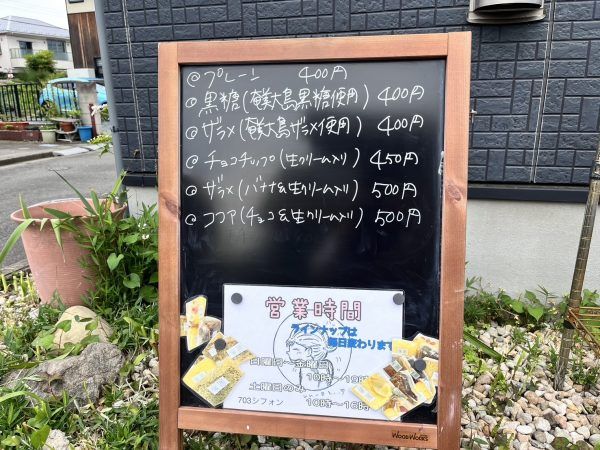 @プレーン 400円
@黒糖(奄美大島黒糖使用) 400円
@ザラメ(奄美大島ザラメ使用) 400円
@チョコチップ(生クリーム入り) 450円
@ザラメ(バナナ&生クリーム入り) 500円
@ココア(チョコ&生クリーム入り) 500円
営業時間
ラインナップは
毎日変わります
日曜日~金曜日
10時~19時
土曜日のみ
703シフォン 10時~16時
WOODWORKS